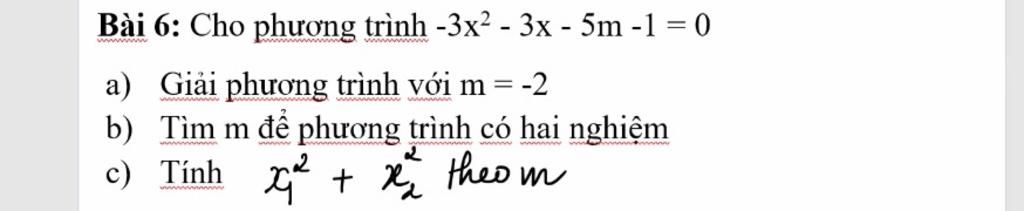 Bài 6: Cho phương trình -3x² - 3x - 5m -1 = 0
a) Giải phương trình với m = -2
b) Tìm m để phương trình có hai nghiệm
c) Tính x₁² + x₂² theo m